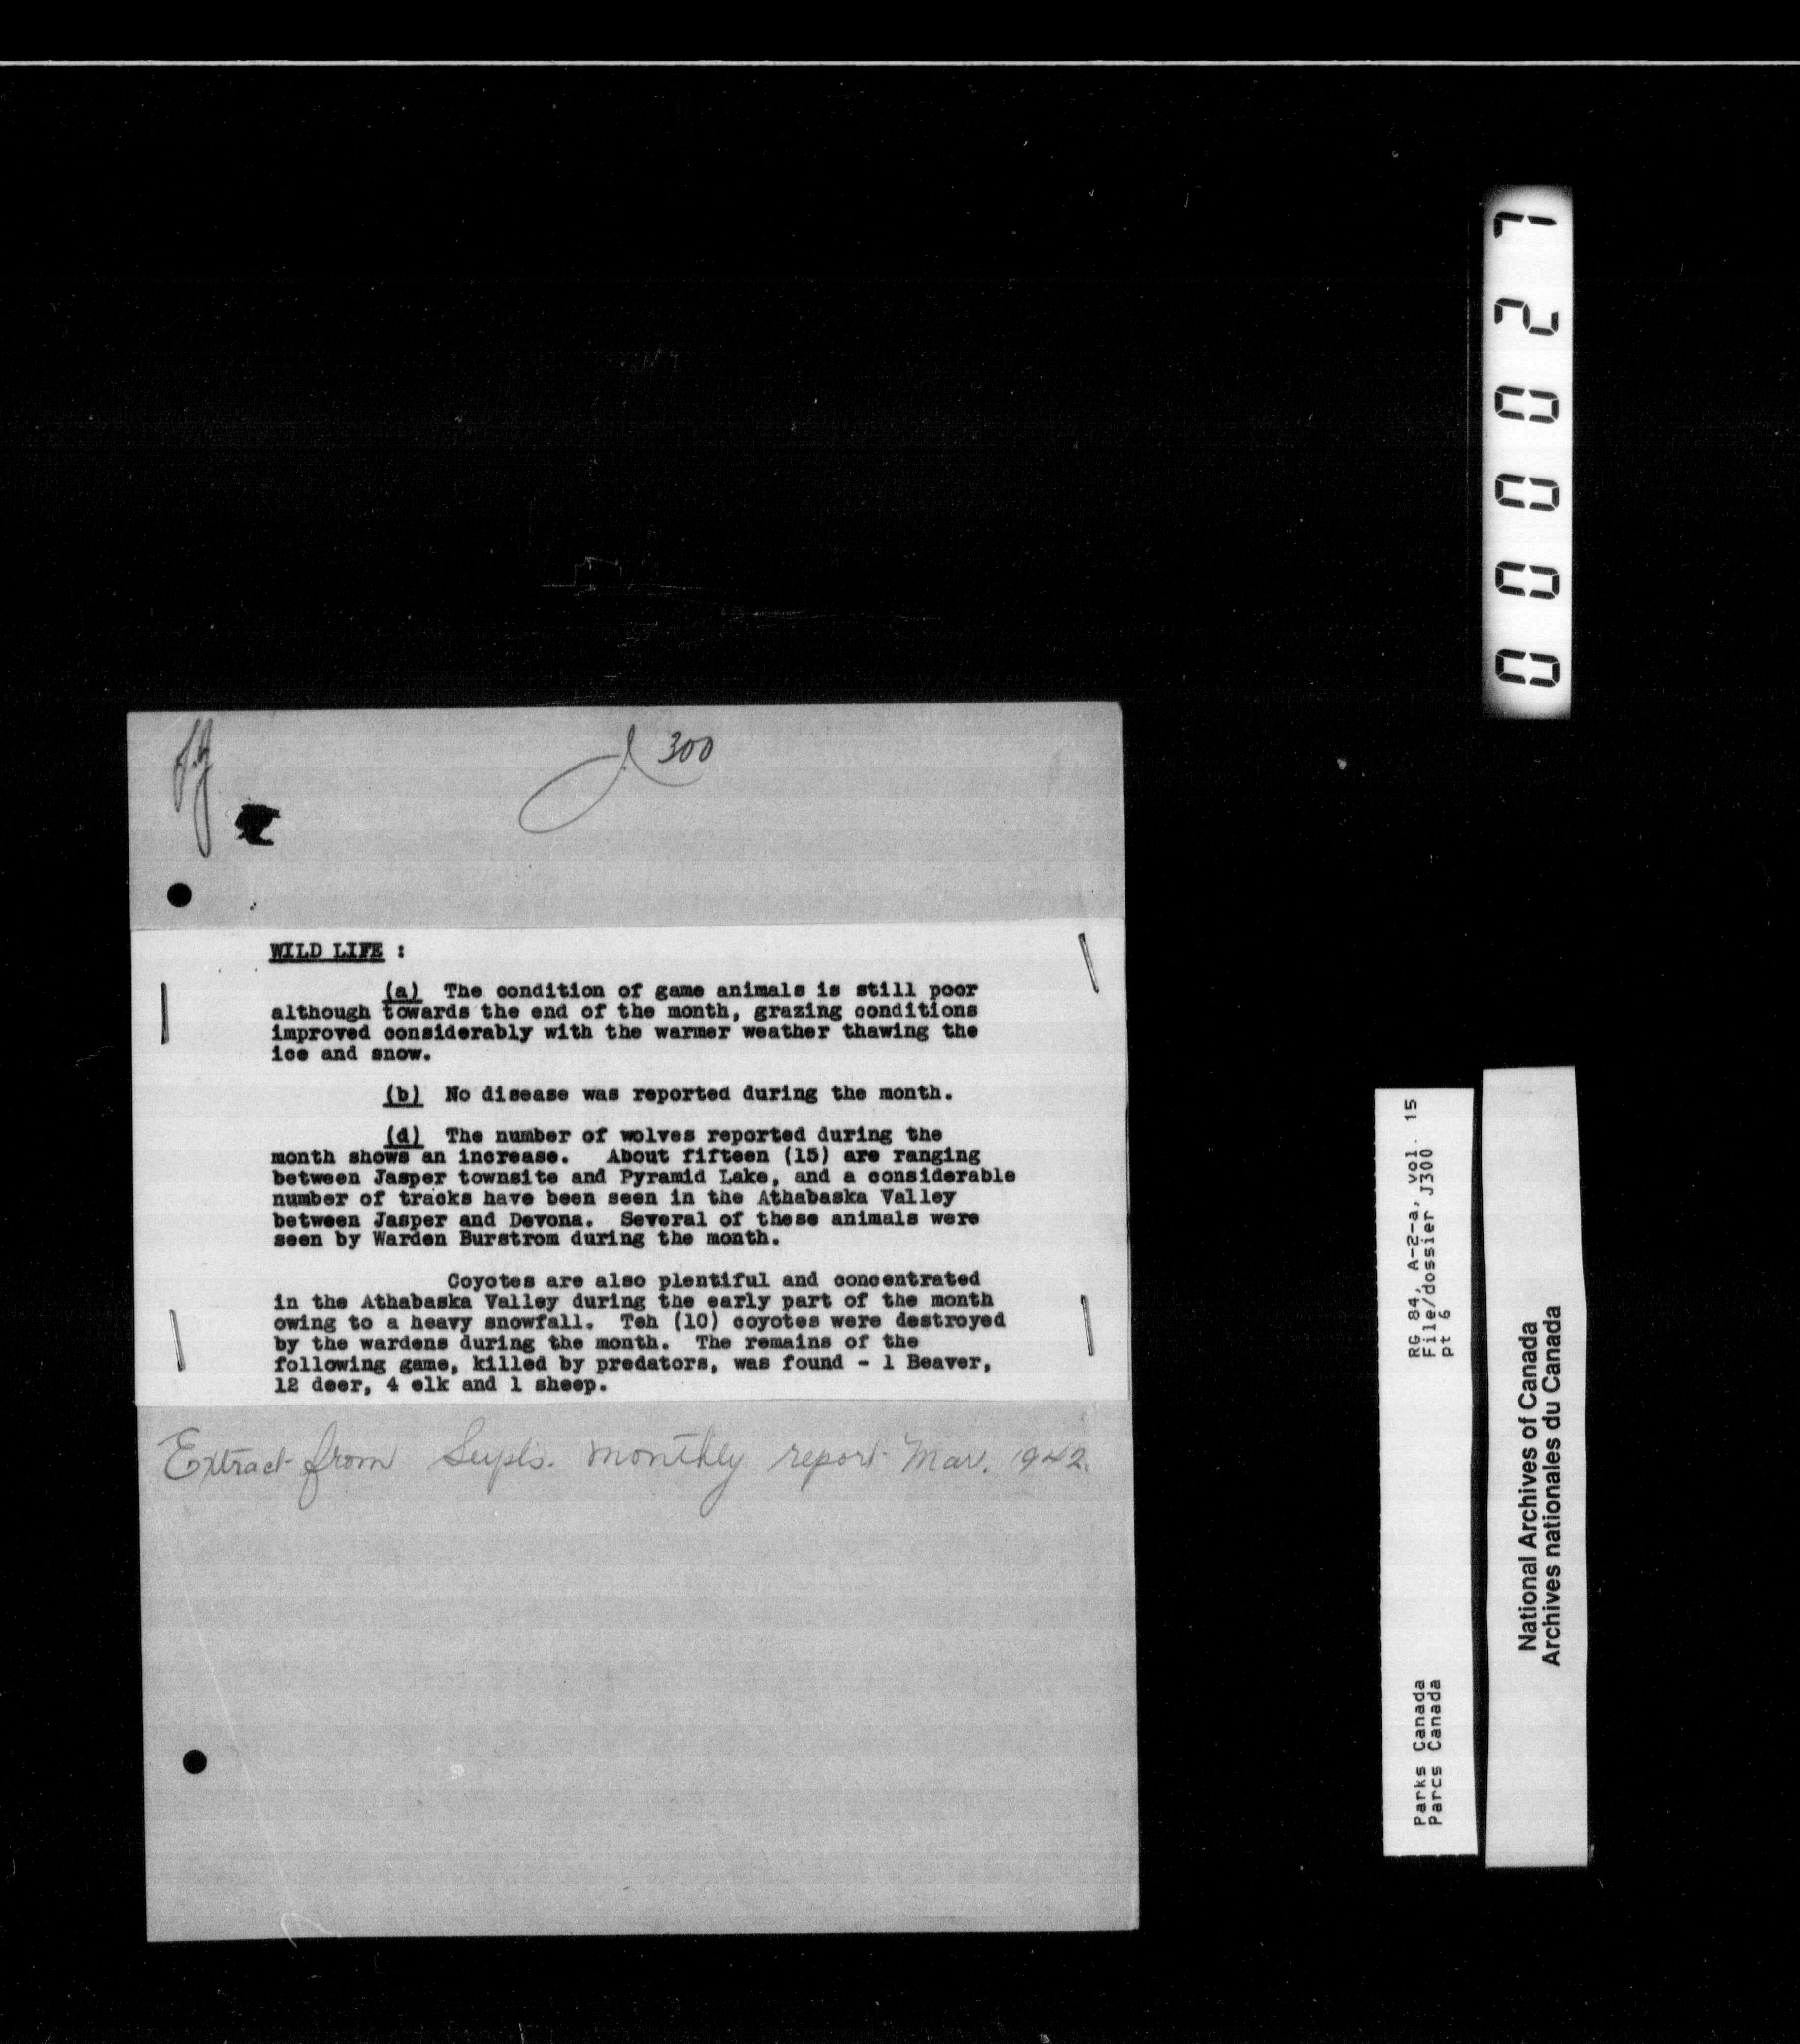 J 300
WILD LIFE :
(a) The condition of game animals is still poor
although towards the end of the month, grazing conditions
improved considerably with the warmer weather thawing the
ice and snow.
(b) No disease was reported during the month.
(d) The number of wolves reported during the
month shows an increase. About fifteen (15) are ranging
between Jasper townsite and Pyramid Lake, and a considerable
number of tracks have been seen in the Athabaska Valley
between Jasper and Devona. Several of these animals were
seen by Warden Burstrom during the month.
Coyotes are also plentiful and concentrated
in the Athabaska Valley during the early part of the month
owing to a heavy snowfall. Teh (10) coyotes were destroyed
by the wardens during the month. The remains of the
following game, killed by predators, was found - 1 Beaver,
12 deer, 4 elk and 1 sheep.
Extract from Supts. monthly report Mar. 1942.
000027
RG 84, A-2-a, vol. 15
File/dossier J300
pt 6
Parks Canada
Parcs Canada
National Archives of Canada
Archives nationales du Canada